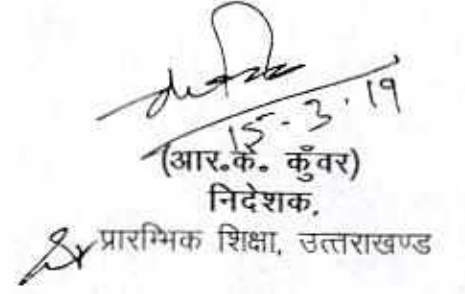 15-3.19
(आर.के. कुँवर)
निदेशक,
प्रारम्भिक शिक्षा, उत्तराखण्ड